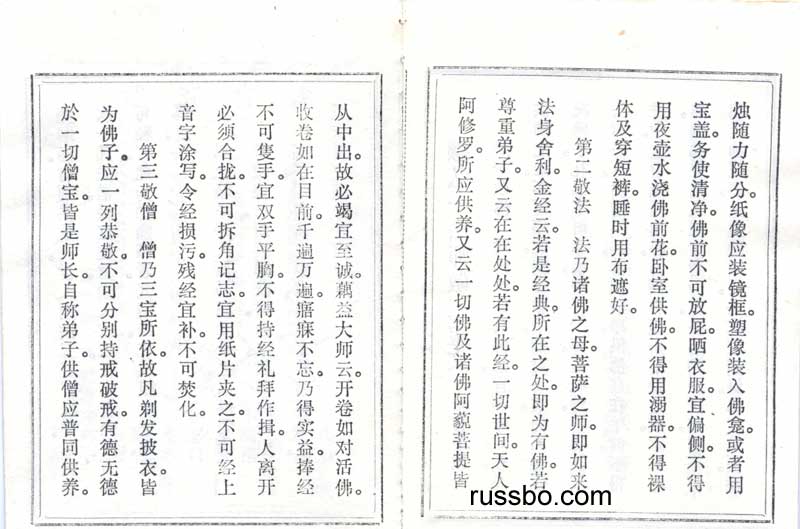 烛随力随分。纸像应装镜框。塑像装入佛龛。或者用
宝盖务使清净。佛前不可放屁。晒衣服宜偏侧。不得
用夜壶水浇佛前花。卧室供佛。不得用溺器不得裸
体及穿短裤。睡时用布遮好。
第二敬法 法乃诸佛之母。菩萨之师。即如来
法身舍利。金经云。若是经典所在之处。即为有佛。若
尊重弟子。又云在在处处。若有此经。一切世间。天人
阿修罗。所应供养。又云一切佛及诸佛阿藐菩提皆
从中出。故必竭宜至诚。藕益大师云。开卷如对活佛。
收卷如在目前。千遍万遍。寤寐不忘。乃得实益。捧经
不可隻手。宜双手平胸。不得持经礼拜作揖。人离开
必须合拢。不可拆角记志。宜用纸片夹之。不可经上
音字涂写。令经损污。残经宜补。不可焚化。
第三敬僧 僧乃三宝所依。故凡剃发披衣。皆
为佛子。应一列恭敬。不可分别持戒破戒。有德无德
於一切僧宝。皆是师长自称弟子。供僧应普同供养。
russbo.com